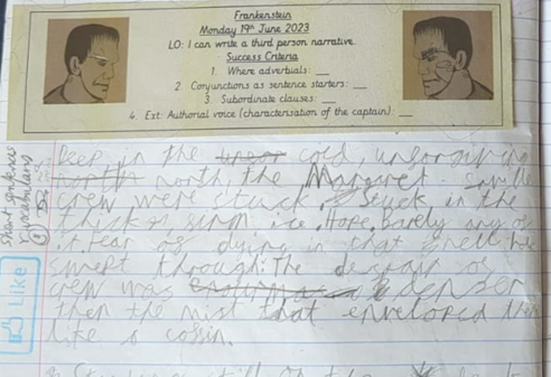 Frankenstein
Monday 19th June 2023
LO: I can write a third person narrative.
Success Criteria
1. Where adverbials: __
2. Conjunctions as sentence starters: __
3. Subordinate clauses: __
4. Ext: Authorial voice (characterisation of the captain): __
short sentences
vocabulary
Like
Deep in the cold, unforgiving
north north, the Margaret
crew were stuck. Stuck in the
thick ice. Hope. Barely any of
it. Fear of dying in that hell hole
swept through. The despair of
crew was denser
then the mist that enveloped them
like a coffin.